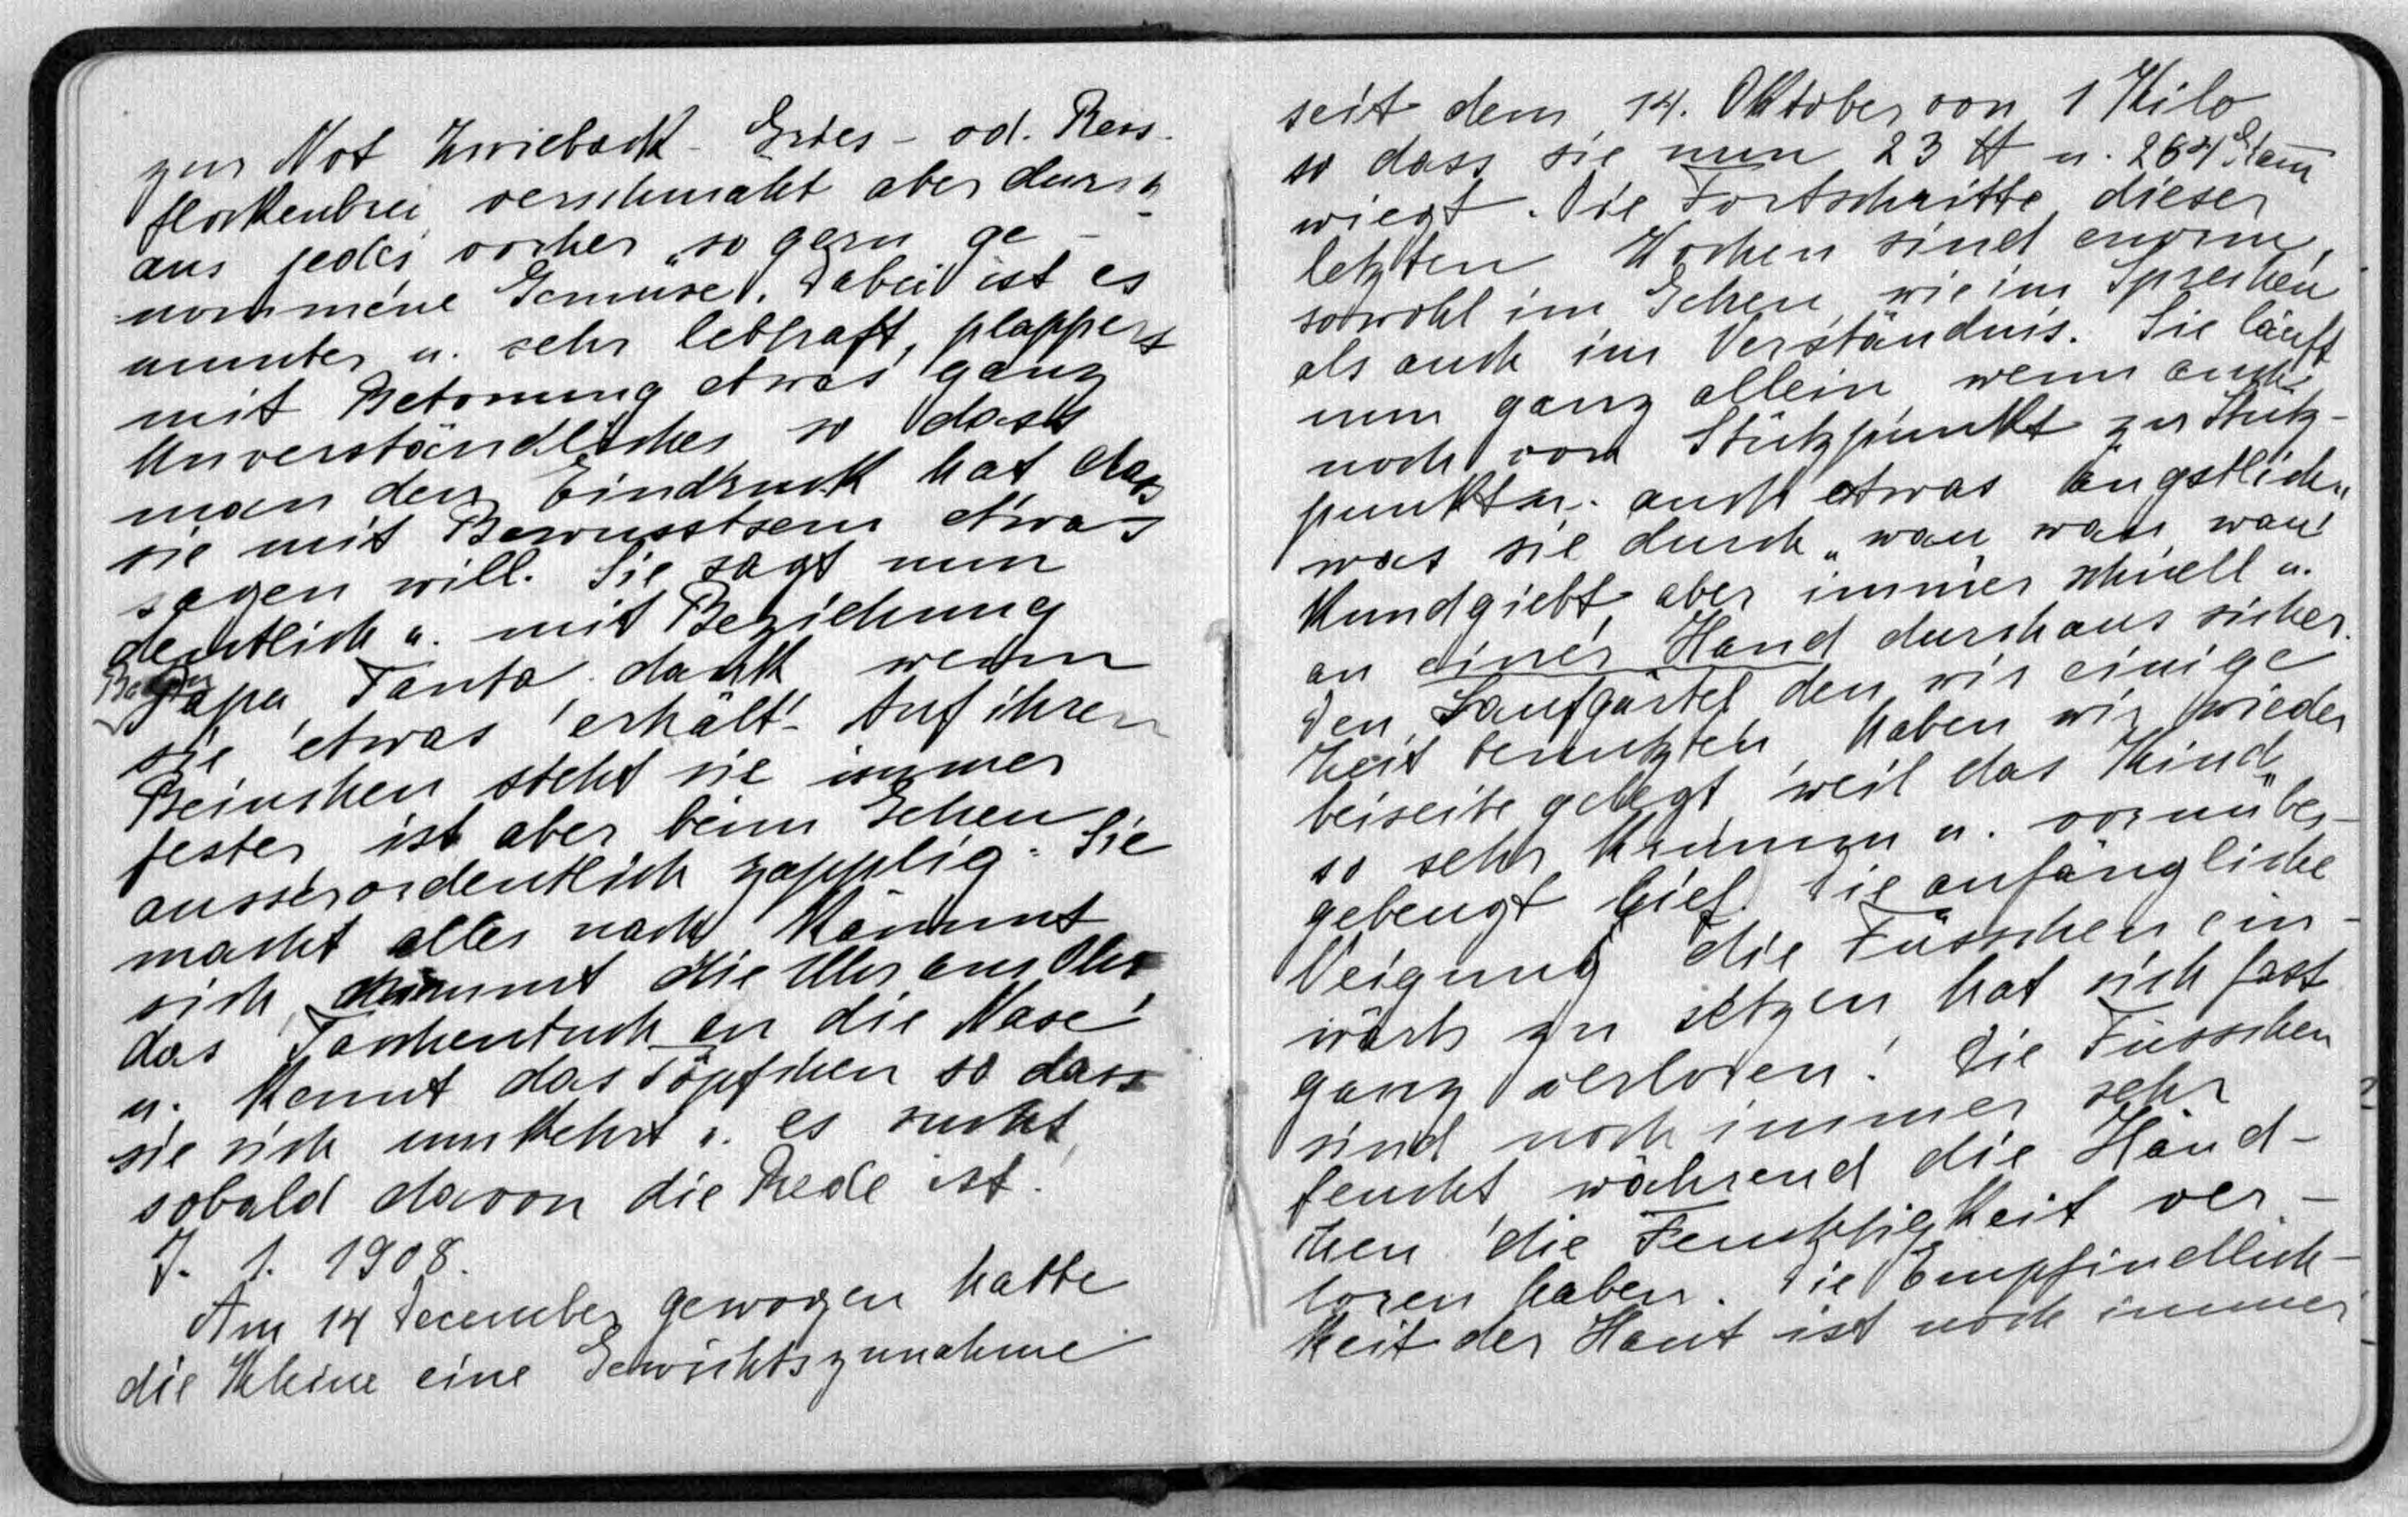 zur Not Zwieback- Gries- od. Reis-
flockenbrei verschmäht aber durch-
aus jedes vorher so gern ge-
nommene Gemüse. Dabei ist es
munter u. sehr lebhaft, plappert
mit Betonung etwas ganz
Unverständliches so dass
man den Eindruck hat dass
sie mit Bewusstsein etwas
sagen will. Sie sagt nun
deutlich u. mit Beziehung
Papa Tanta dank wenn
sie etwas erhält. Auf ihren
Beinchen steht sie immer
fester ist aber beim Gehen
ausserordentlich zapplig. Sie
macht alles nach kämmt
sich, nimmt die Uhr ans Ohr
das Taschentuch an die Nase
u. kennt das Töpfchen so dass
sie sich umkehrt u. es sucht,
sobald davon die Rede ist.
7. 1. 1908.
Am 14 December gewogen hatte
die Kleine eine Gewichtszunahme
seit dem 14. Oktober von 1 Kilo
so dass sie nun 23 ℔ u. 264 Gram̅
wiegt. Die Fortschritte dieser
letzten Wochen sind enorm,
sowohl im Gehen, wie im Sprechen
als auch im Verständnis. Sie läuft
nun ganz allein wenn auch
noch von Stützpunkt zu Stütz-
punkt u. auch etwas ängstlich,
was sie durch „wau wau wau"
kundgiebt, aber immer schnell u.
an einer Hand durchaus sicher.
Den Laufgürtel den wir einige
Zeit benutzten haben wir wieder
beiseite gelegt, weil das Kind
so sehr krumm u. vornüber-
gebeugt lief. Die anfängliche
Neigung die Füsschen ein-
wärts zu setzen hat sich fast
ganz verloren! Die Füsschen
sind noch immer sehr
feucht während die Händ-
chen die Feuchtigkeit ver-
loren haben. Die Empfindlich-
keit der Haut ist noch immer